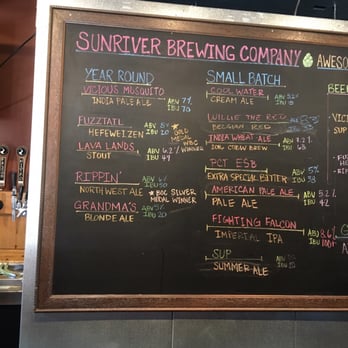 SUNRIVER BREWING COMPANY AWESO
YEAR ROUND
VICIOUS MOSQUITO
INDIA PALE ALE
ABV 7%
IBU 70
FUZZTAIL
HEFEWEIZEN
ABV 5%
IBU 20
* GOLD
MEDAL
WBC
WINNER
LAVA LANDS
STOUT
ABV 6.2%
IBU 49
RIPPIN'
NORTHWEST ALE
ABV 6%
IBU 50
* BOC SILVER
MEDAL WINNER
GRANDMA'S
BLONDE ALE
ABV 5%
IBU 20
SMALL BATCH
COOL WATER
CREAM ALE
ABV
IBU
WILLIE THE RED
BELGIAN RED
INDIA WHEAT ALE
ABV
IBU 68
PCT ESB
EXTRA SPECIAL BITTER
ABV 5%
IBU 38
AMERICAN PALE ALE
PALE ALE
ABV 5.2%
IBU 42
FIGHTING FALCON
IMPERIAL IPA
ABV 8.6%
IBU 100+
SUP
SUMMER ALE
BEE
VIC
SUP